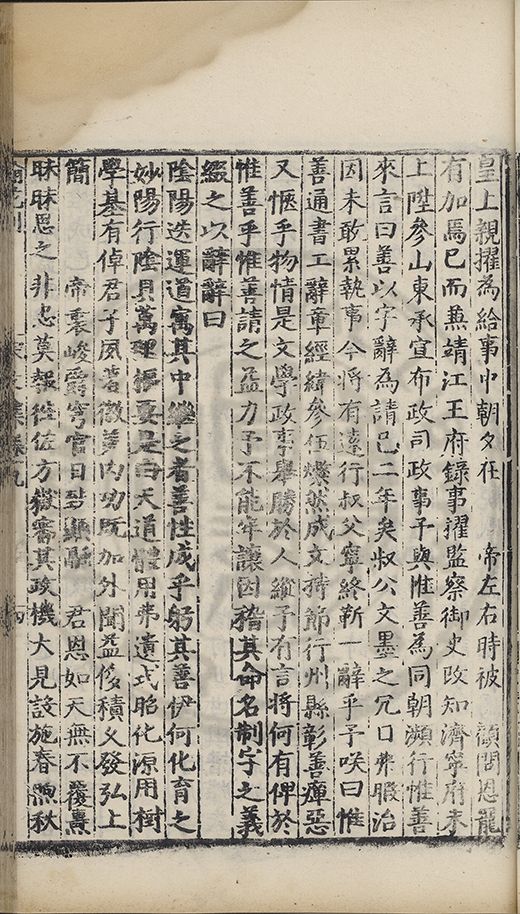 皇上親擢為給事中朝夕在　帝左右時被　顧問恩寵
有加焉已而兼靖江王府錄事擢監察御史改知濟寧府未
上陞參山東承宣布政司政事予與惟善為同朝瀕行惟善
來言曰善以字辭為請已二年矣叔公文墨之冗口弗暇治
因未敢累執事今將有遠行叔父寧終靳一辭乎予咲曰惟
善通書工辭章經緯參伍燦然成文持節行州縣彰善癉惡
又愜乎物情是文學政事舉勝於人縱予有言將何有俾於
惟善乎惟善請之益力予不能牢讓因稽其命名制字之義
綴之以辭辭曰
陰陽迭運道寓其中繼之者善性成乎躬其善伊何化育之
妙陽行陰具萬理根奧是曰天道體用弗遺式昭化源用樹
學基有倬君子夙著徽美內功既加外聞益侈積久發弘上
簡　帝衷峻爵穹官日致顯融　君恩如天無不覆燾
昧昧思之非忠莫報往佐方嶽審其政機大見設施春煦秋